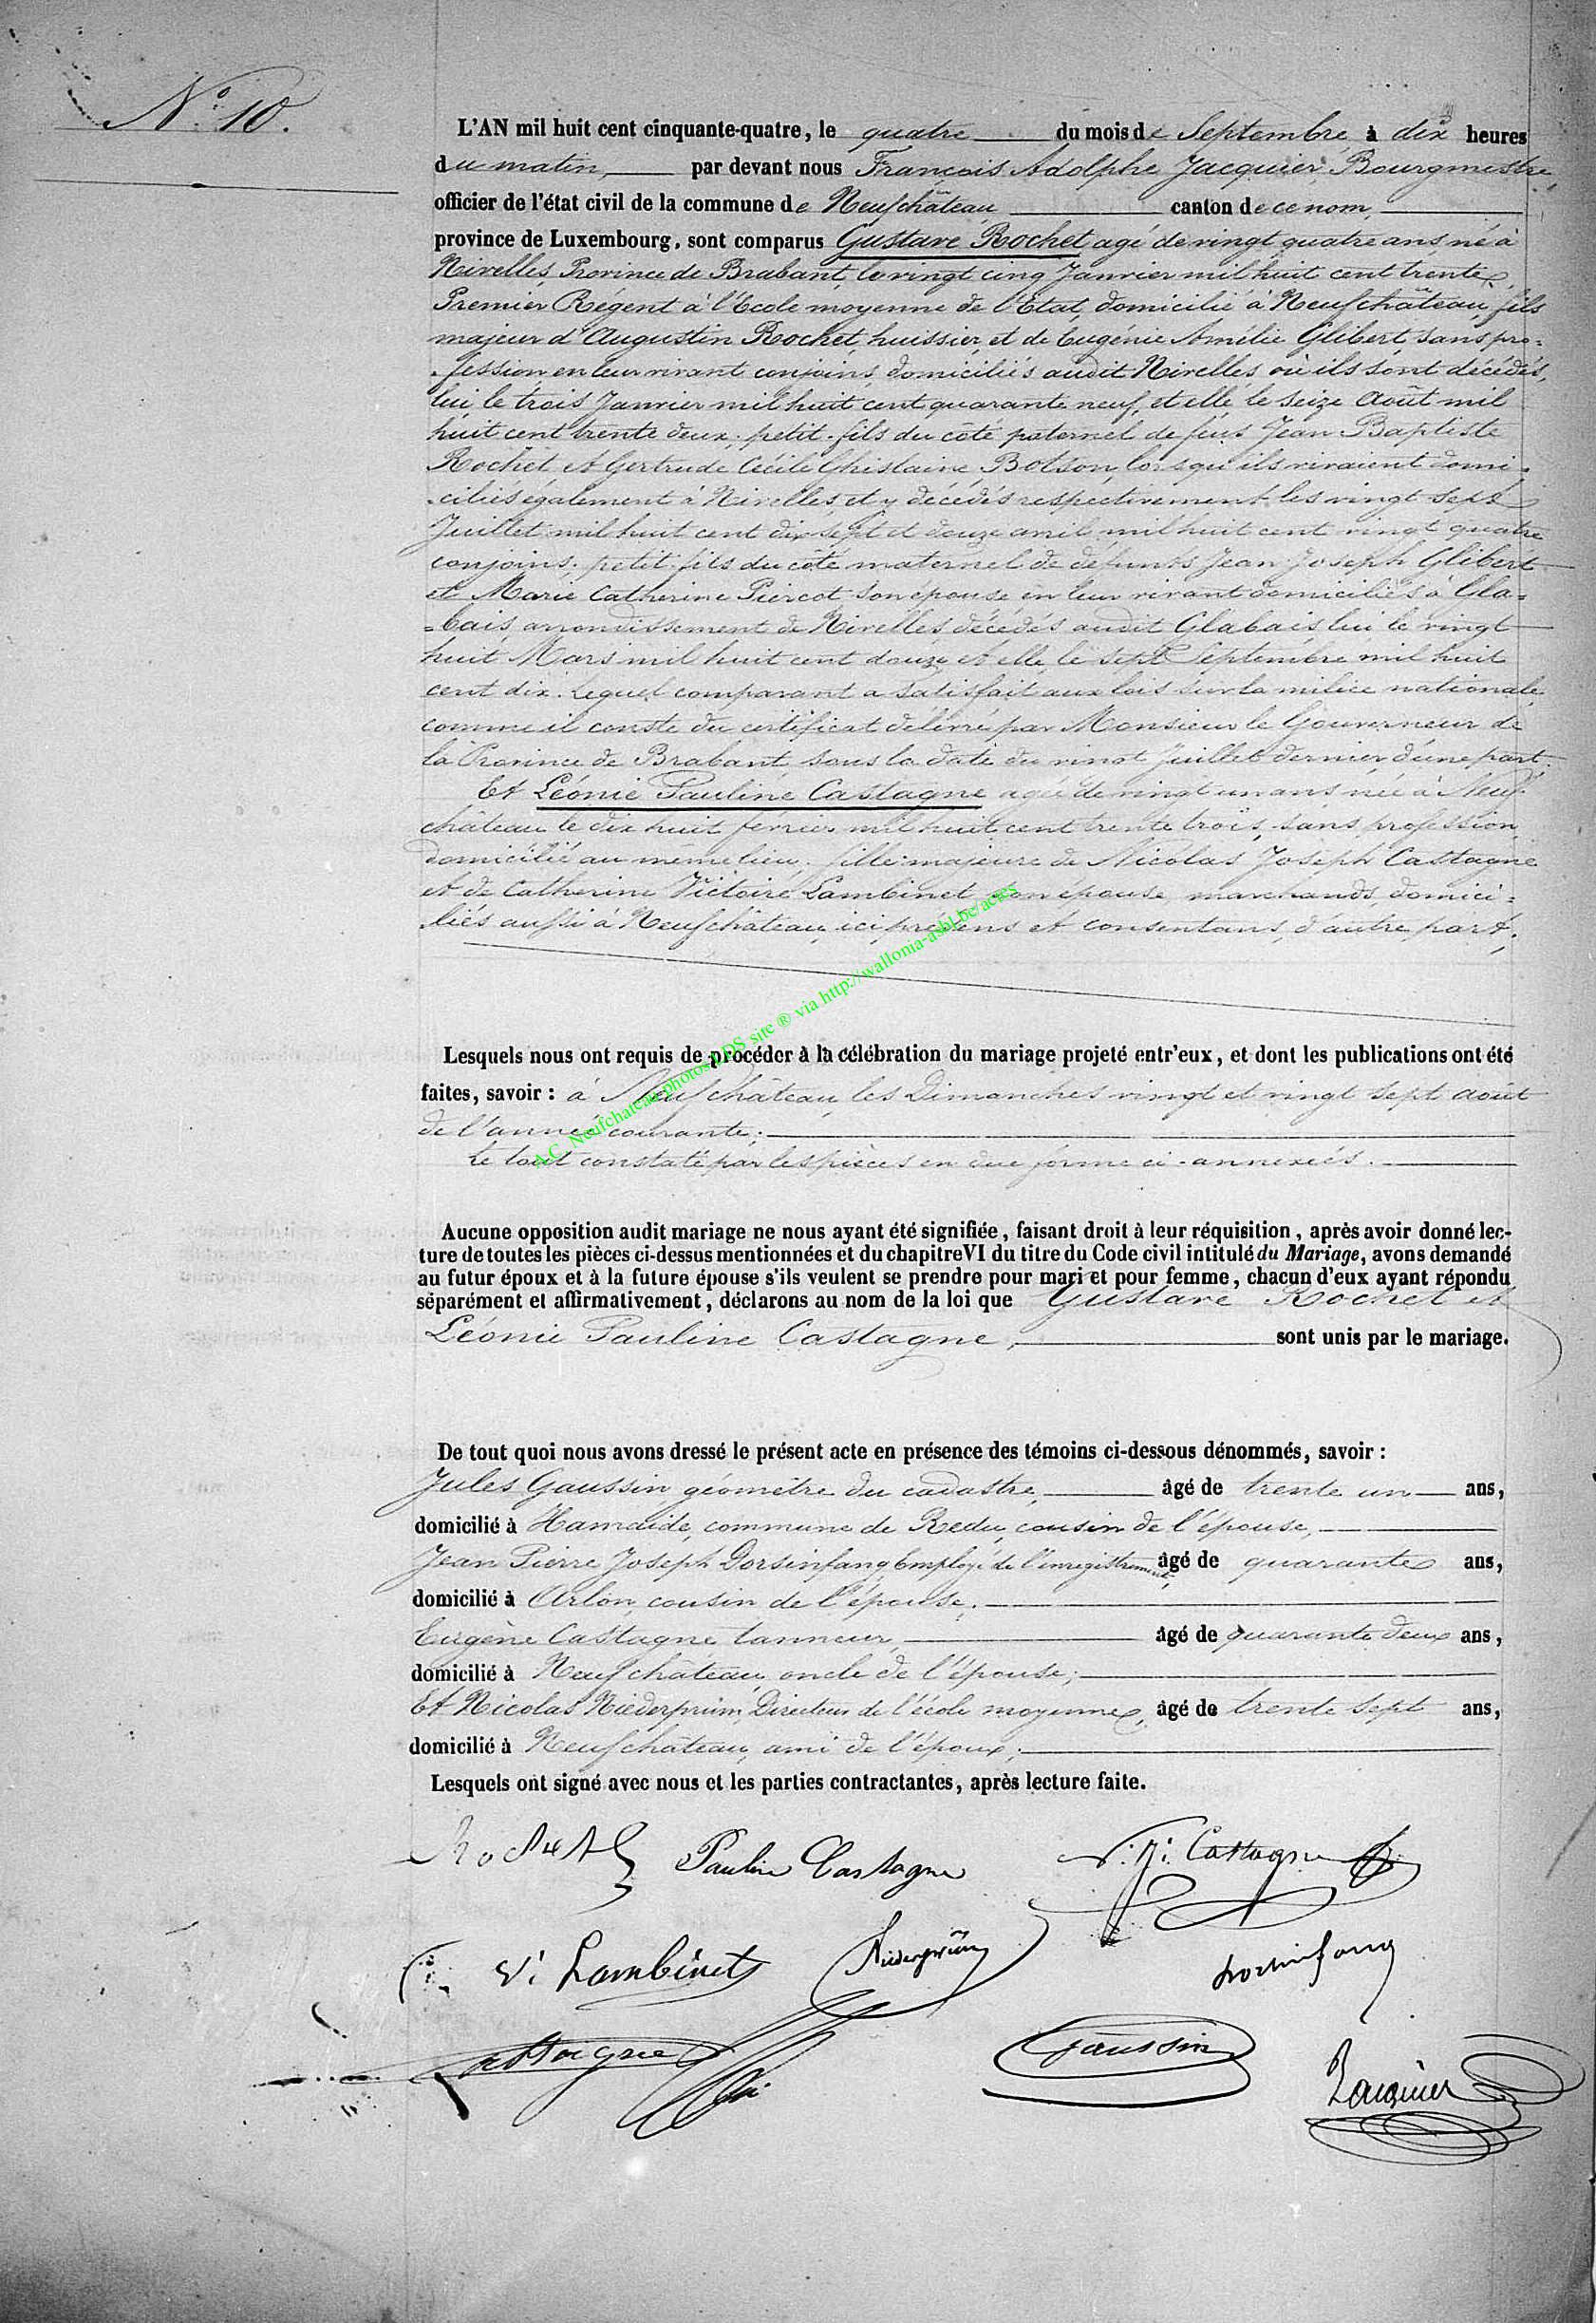 N.° 10.
L'AN mil huit cent cinquante-quatre, le quatre du mois de Septembre à dix heures
du matin, par devant nous François Adolphe Jacquier, Bourgmestre,
officier de l'état civil de la commune de Neufchâteau canton de ce nom,
province de Luxembourg, sont comparus Gustave Rochet agé de vingt quatre ans, né à
Nivelles, Province de Brabant, le vingt cinq Janvier mil huit cent trente,
Premier Régent à l'Ecole moyenne de l'Etat, domicilié à Neufchâteau, fils
majeur d'Augustin Rochet, huissier, et de Eugénie Amélie Glibert, sans pro=
=fession en leur vivant conjoins, domiciliés audit Nivelles où ils sont décédés,
lui le trois Janvier mil huit cent quarante neuf, et elle le seize Août mil
huit cent trente deux; petit-fils du côté paternel de feus Jean Baptiste
Rochet et Gertrude Cécile Ghislaine Botson, lorsqu'ils vivaient domi=
=ciliés également à Nivelles et y décédés respectivement les vingt sept
Juillet mil huit cent dix sept et douze avril mil huit cent vingt quatre
conjoins; petit-fils du côté maternel de défunts Jean Joseph Glibert
et Marie Catherine Piercot son épouse en leur vivant domiciliés à Gla=
=bais, arrondissement de Nivelles, décédés audit Glabais lui le vingt
huit Mars mil huit cent douze et elle le sept Septembre mil huit
cent dix. Lequel comparant a satisfait aux lois sur la milice nationale
comme il conste du certificat délivré par Monsieur le Gouverneur de
la Province de Brabant, sous la date du vingt Juillet dernier, d'une part.
Et Léonie Pauline Castagne agée de vingt un ans, née à Neuf-
château le dix huit février mil huit cent trente trois, sans profession
domicilié au même lieu, fille majeure de Nicolas Joseph Castagne
et de Catherine Victoire Lambinet, son épouse, marchands, domici=
liés aussi à Neufchâteau, ici présens et consentans, d'autre part;
A.C. Neufchateau photos LDS site ® via http://wallonia-asbl.be/actes
Lesquels nous ont requis de procéder à la célébration du mariage projeté entr'eux, et dont les publications ont été
faites, savoir : à Neufchâteau, les Dimanches vingt et vingt sept août
de l'année courante;
Le tout constaté par les pièces en due forme ci-annexées.
Aucune opposition audit mariage ne nous ayant été signifiée, faisant droit à leur réquisition, après avoir donné lec-
ture de toutes les pièces ci-dessus mentionnées et du chapitre VI du titre du Code civil intitulé du Mariage, avons demandé
au futur époux et à la future épouse s'ils veulent se prendre pour mari et pour femme, chacun d'eux ayant répondu
séparément et affirmativement, déclarons au nom de la loi que Gustave Rochet et
Léonie Pauline Castagne, sont unis par le mariage.
De tout quoi nous avons dressé le présent acte en présence des témoins ci-dessous dénommés, savoir :
Jules Gaussin géomètre du cadastre, âgé de trente un ans,
domicilié à Hamaide, commune de Redu, cousin de l'épouse,
Jean Pierre Joseph Dorsinfang, Employé de l'enregistrement, âgé de quarante ans,
domicilié à Arlon, cousin de l'épouse,
Eugène Castagne tanneur, âgé de quarante deux ans,
domicilié à Neufchâteau, oncle de l'épouse;
Et Nicolas Niederprüm, Directeur de l'école moyenne, âgé de trente sept ans,
domicilié à Neufchâteau, ami de l'époux;
Lesquels ont signé avec nous et les parties contractantes, après lecture faite.
Rochet Pauline Castagne N. J. Castagne
C. V. Lambinet Niederprüm Dorsinfang
Castagne Gaussin Jacquier